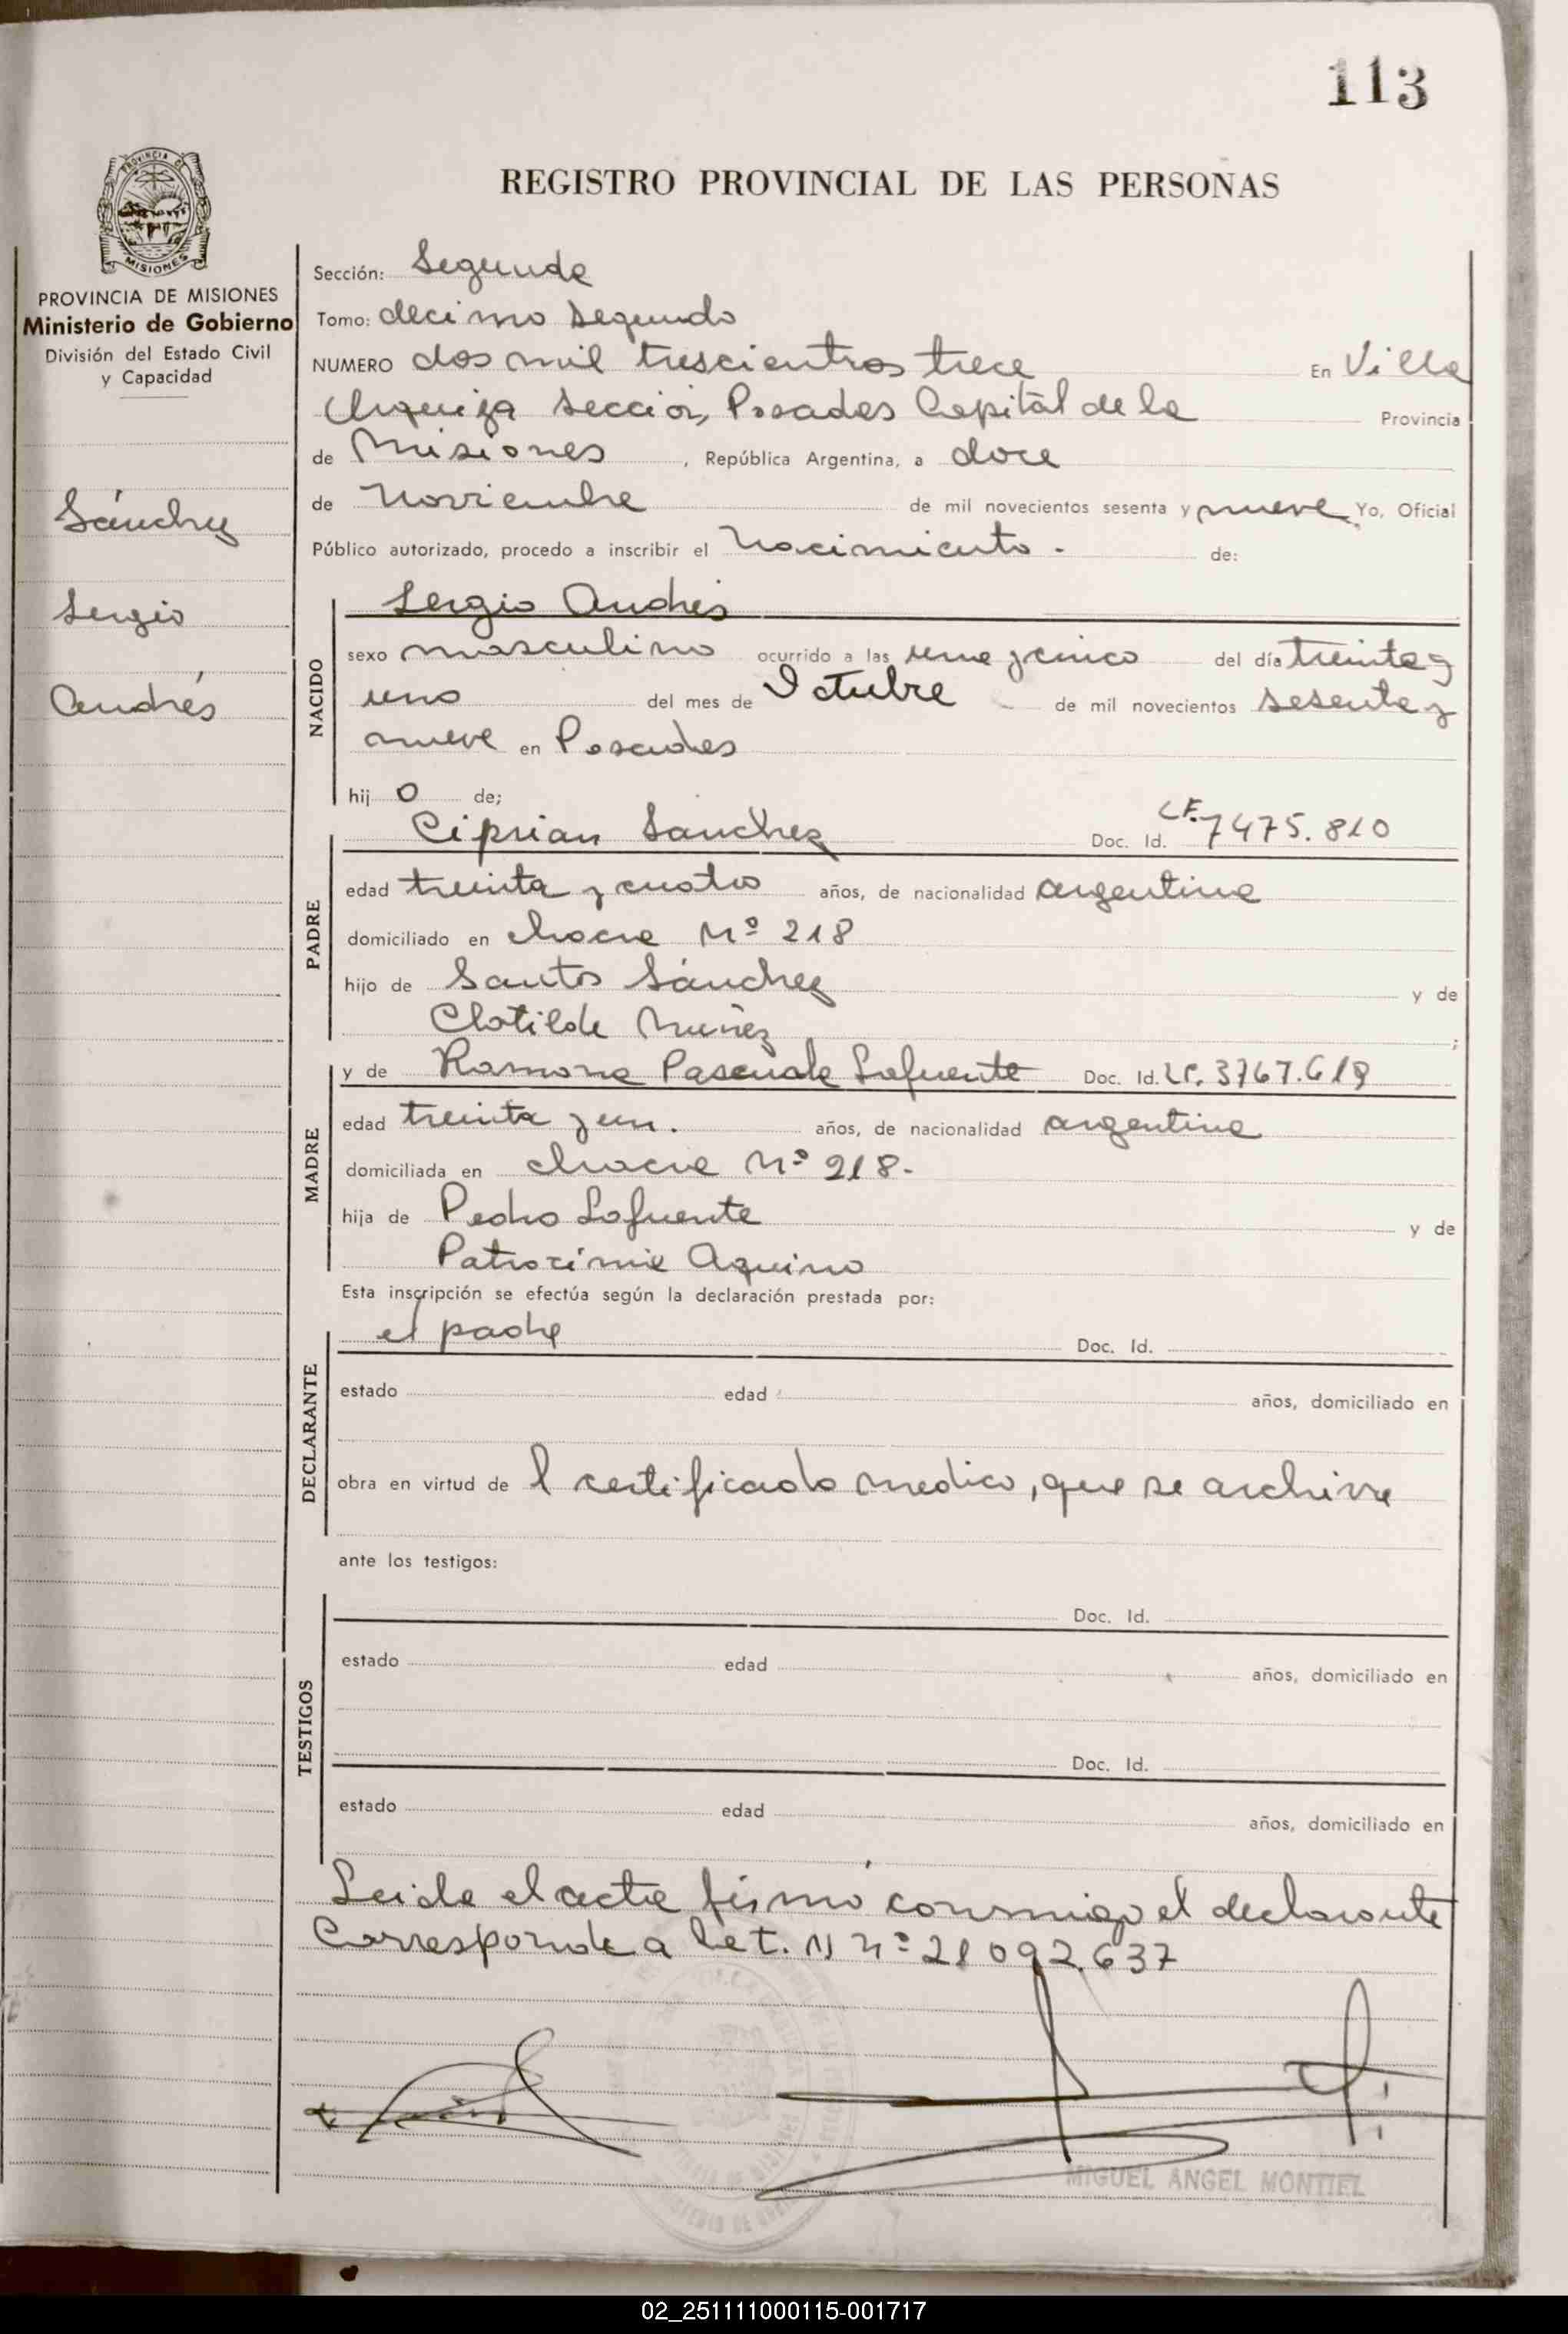 113
REGISTRO PROVINCIAL DE LAS PERSONAS
PROVINCIA DE MISIONES
Ministerio de Gobierno
División del Estado Civil
y Capacidad
Sánchez
Sergio
Andrés
Sección: Segunda
Tomo: decimo segundo
NUMERO dos mil trescientros trece En Villa
Urquiza Sección, Posadas Capital de la Provincia
de Misiones, República Argentina, a doce
de Noviembre de mil novecientos sesenta y nueve Yo, Oficial
Público autorizado, procedo a inscribir el Nacimiento - de:
NACIDO
Sergio Andrés
sexo masculino ocurrido a las una y cinco del día treinta y
uno del mes de Octubre de mil novecientos sesenta y
nueve en Posadas
hij o de;
PADRE
Ciprian Sanchez Doc. Id. 7475.810
edad treinta y cuatro años, de nacionalidad argentina
domiciliado en chacra Nº 218
hijo de Santos Sánchez y de
Clotilde Nuñez ;
MADRE
y de Ramona Pascuala Lafuente Doc. Id. LC. 3767.619
edad treinta y un. años, de nacionalidad argentina
domiciliada en chacra Nº 218-
hija de Pedro Lafuente y de
Patrocinia Aquino
Esta inscripción se efectúa según la declaración prestada por:
DECLARANTE
el padre Doc. Id.
estado edad años, domiciliado en
obra en virtud de l certificado medico, que se archiva
ante los testigos:
TESTIGOS
Doc. Id.
estado edad años, domiciliado en
Doc. Id.
estado edad años, domiciliado en
Leida el acta firmó conmigo el declarante
Corresponde a Let. N nº 21092.637
MIGUEL ANGEL MONTIEL
02_251111000115-001717